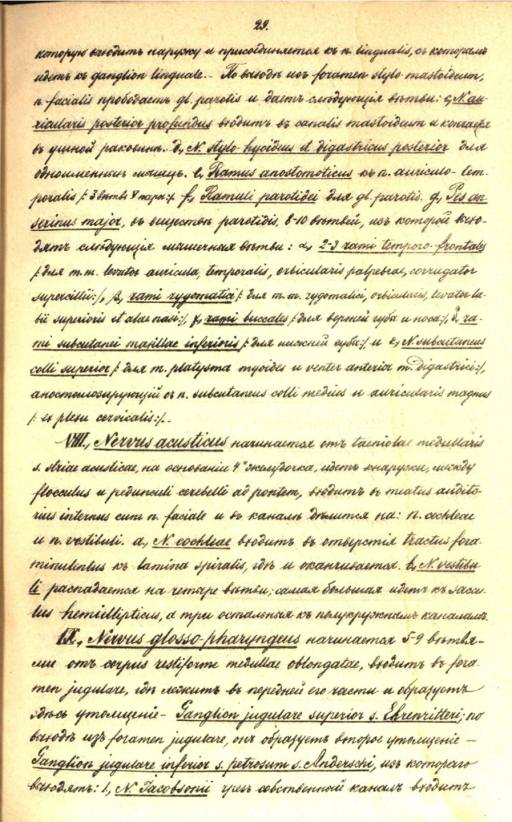 29.
которую выходитъ наружу и присоединяется къ n. lingualis, съ которымъ
идетъ къ ganglion linguale. — По выходѣ изъ foramen stylo-mastoideum,
n. facialis прободаетъ gl. parotis и даетъ слѣдующія вѣтви: c, N. au-
ricularis posterior profundus входитъ въ canalis mastoideum и кончается
въ ушной раковинѣ. d, N. stylo-hyoideus et digastricus posterior для
одноименныхъ мышцъ. e, Ramus anostomoticus къ n. auriculo-tem-
poralis /: 3 вѣтвь V пары :/ f, Ramuli parotidei для gl. parotis. g, Pes an-
serinus major, въ веществѣ parotidis, 8-10 вѣтвей, изъ которой выхо-
дятъ слѣдующія мышечныя вѣтви: α, 2-3 rami temporo-frontales
/: для m.m. levator auricula, temporalis, orbicularis palpebrae, corrugator
supercillii :/, β, rami zygomatici /: для m.m. zygomatici, orbicularis, levator la-
bii superioris et alae nasi :/, γ, rami buccales /: для верхней губы и носа :/, δ, ra-
mi subcutanei maxillae inferioris /: для нижней губы :/ и ε, N. subcutaneus
colli superior /: для m. platysma myoides и venter anterior m. digastrici :/,
анастомозирующій съ n. subcutaneus colli medius и auricularis magnus
/: ex plexu cervicalis :/. —
VIII., Nervus acusticus начинается отъ taeniolae medullaris
s. striae acusticae, на основаніе 4го желудочка, идетъ кнаружи, между
flocculus и pedunculi cerebelli ad pontem, входитъ въ meatus audito-
rius internus cum n. faciale и въ каналѣ дѣлится на: n. cochleae
и n. vestibuli. a, N. cochleae входитъ въ отверстія tractus fora-
minulentus къ lamina spiralis, гдѣ и оканчивается. b, N. vestibu-
li распадается на четыре вѣтви; самая большая идетъ къ saccu-
lus hemiellipticus, а три остальныя къ полукружнымъ каналамъ.
IX., Nervus glosso-pharyngeus начинается 5-9 вѣтвя-
ми отъ corpus restiforme medullae oblongatae, входитъ въ fora-
men jugulare, гдѣ лежитъ въ передней его части и образуетъ
здѣсь утолщеніе — Ganglion jugulare superior s. Ehrenritteri; по
выходѣ изъ foramen jugulare, онъ образуетъ второе утолщеніе —
Ganglion jugulare inferior s. petrosum s. Anderschi, изъ котораго
выходятъ: 1, N. Jacobsonii чрезъ собственный каналъ входитъ